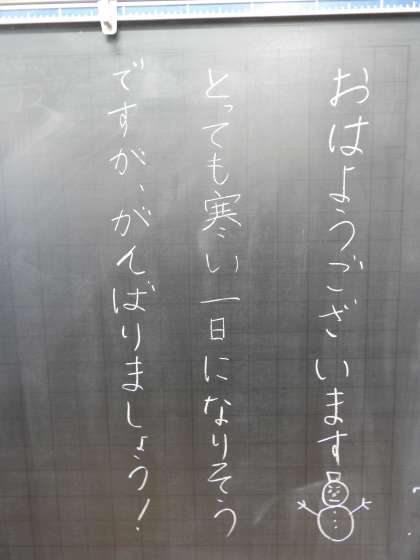 おはようございます
とっても寒い一日になりそう
ですが、がんばりましょう!